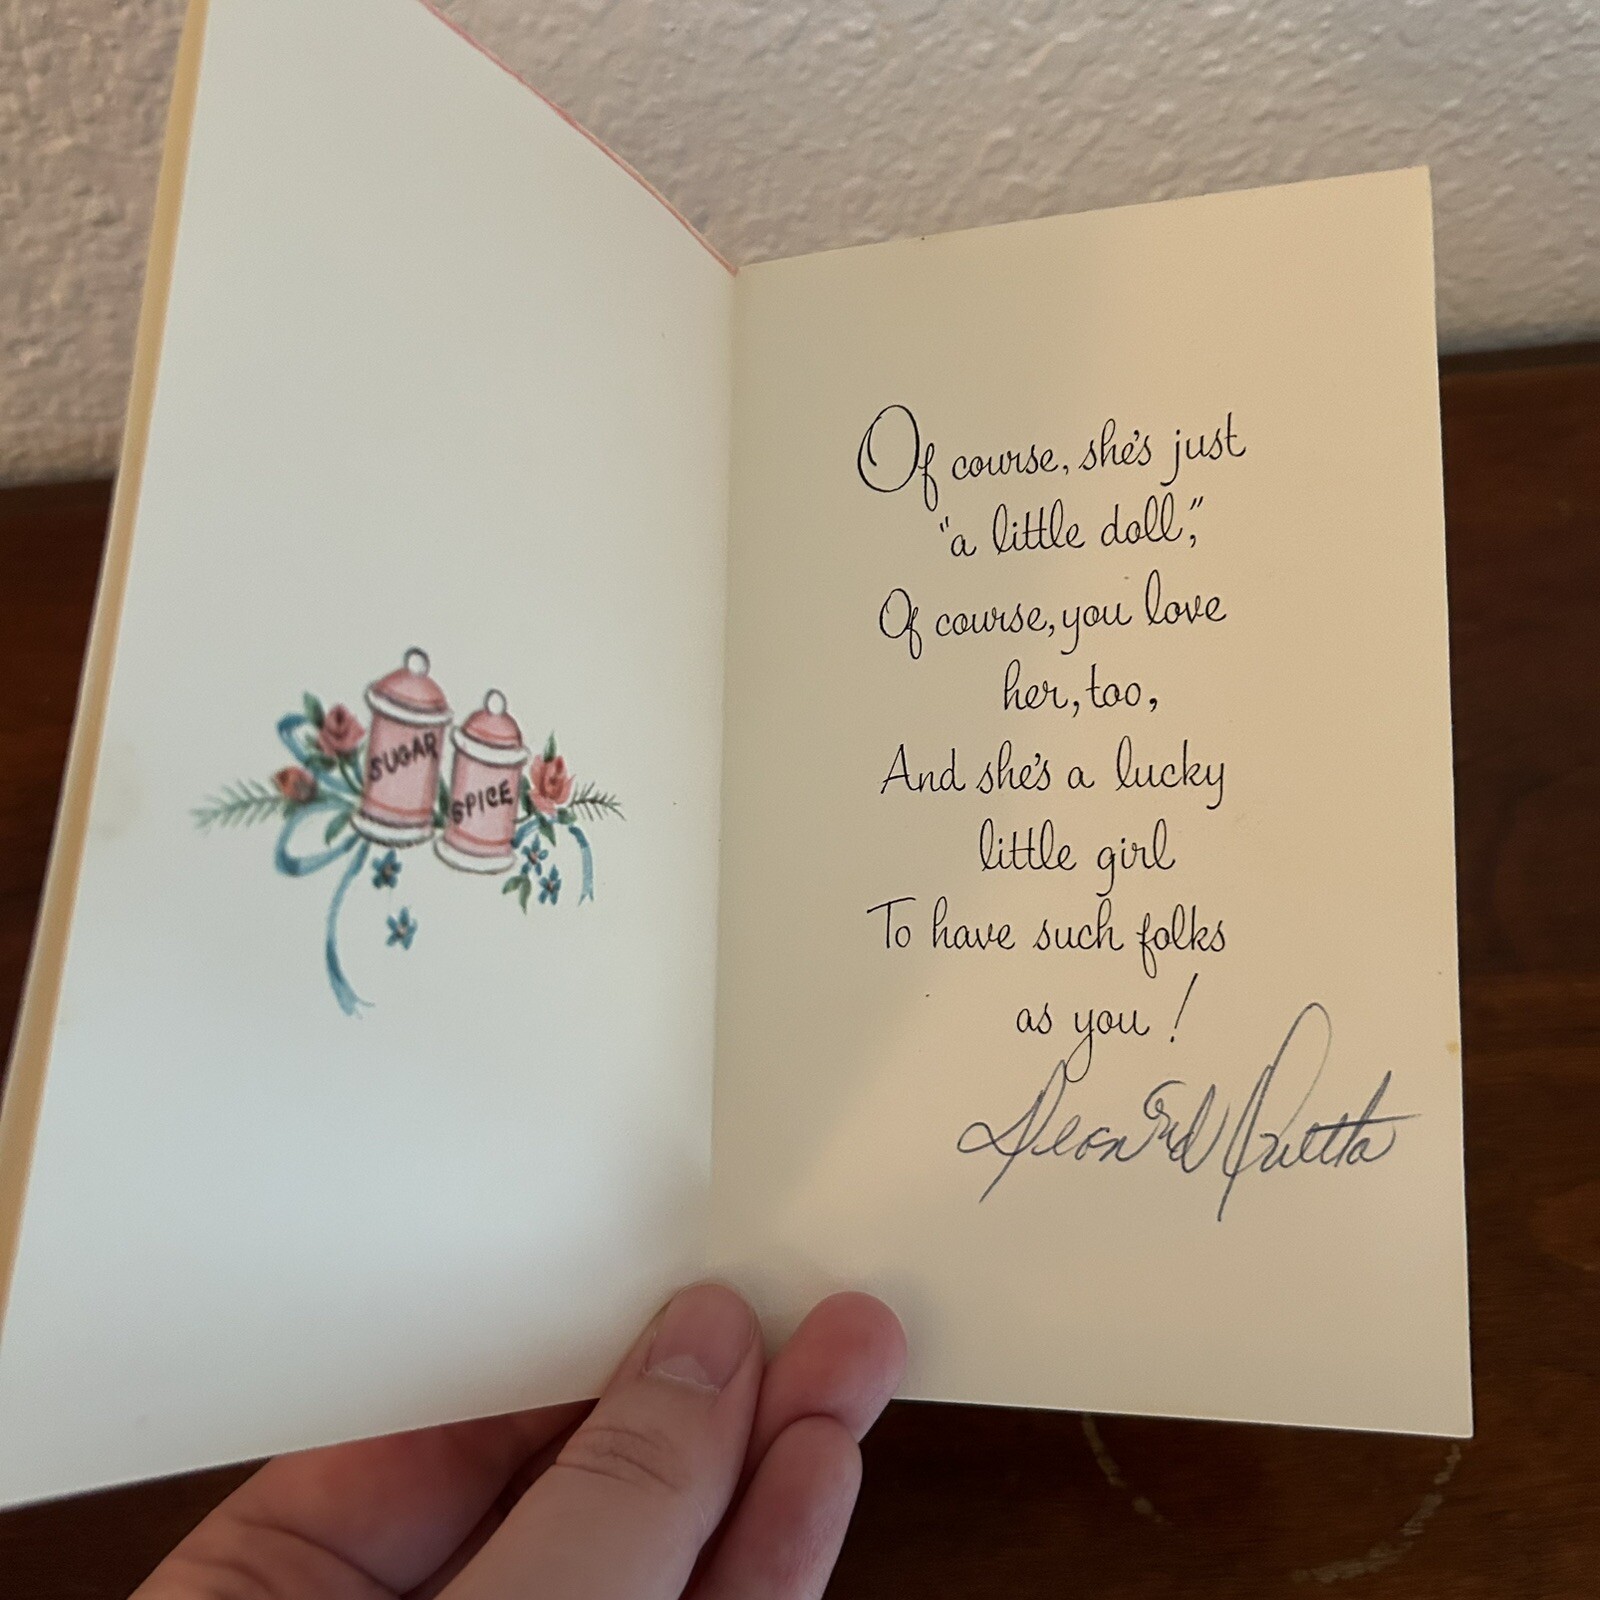 SUGAR
SPICE
Of course, she's just
"a little doll,"
Of course, you love
her, too,
And she's a lucky
little girl
To have such folks
as you!
Leonard